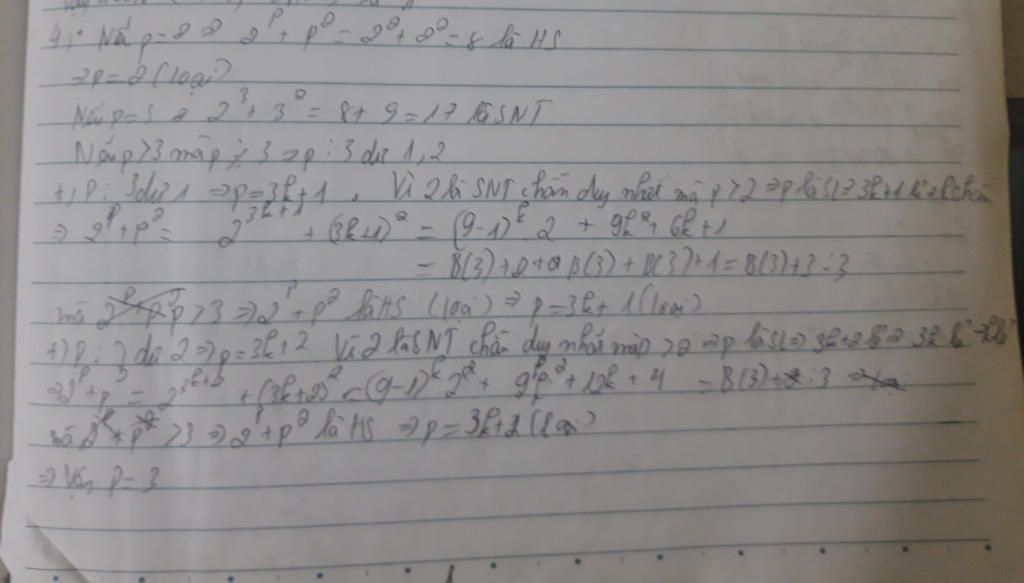 4) · Nếu p=2 ⇒ 2^p + p^2 = 2^2 + 2^2 = 8 là HS
⇒ p = 2 (loại)
Nếu p=3 ⇒ 2^3 + 3^2 = 8 + 9 = 17 là SNT
Nếu p > 3 mà p ⋮̸ 3 ⇒ p : 3 dư 1, 2
+) p : 3 dư 1 ⇒ p = 3k+1 . Vì 2 là SNT chẵn duy nhất mà p > 2 ⇒ p là SL ⇒ 3k+1 lẻ ⇒ k chẵn
⇒ 2^p + p^2 = 2^{3k+1} + (3k+1)^2 = (9-1)^k . 2 + 9k^2 + 6k + 1
= B(3) + 2 + B(3) + B(3) + 1 = B(3) + 3 ⋮ 3
mà p > 3 ⇒ 2^p + p^2 là HS (loại) ⇒ p = 3k + 1 (loại)
+) p : 3 dư 2 ⇒ p = 3k+2 Vì 2 là SNT chẵn duy nhất mà p > 2 ⇒ p là SL ⇒ 3k+2 lẻ ⇒ 3k lẻ ⇒ k lẻ
⇒ 2^p + p^2 = 2^{3k+2} + (3k+2)^2 = (9-1)^k . 2^2 + 9k^2 + 12k + 4 = B(3) ⋮ 3
mà > 3 ⇒ 2^p + p^2 là HS ⇒ p = 3k+2 (loại)
⇒ Vậy p = 3